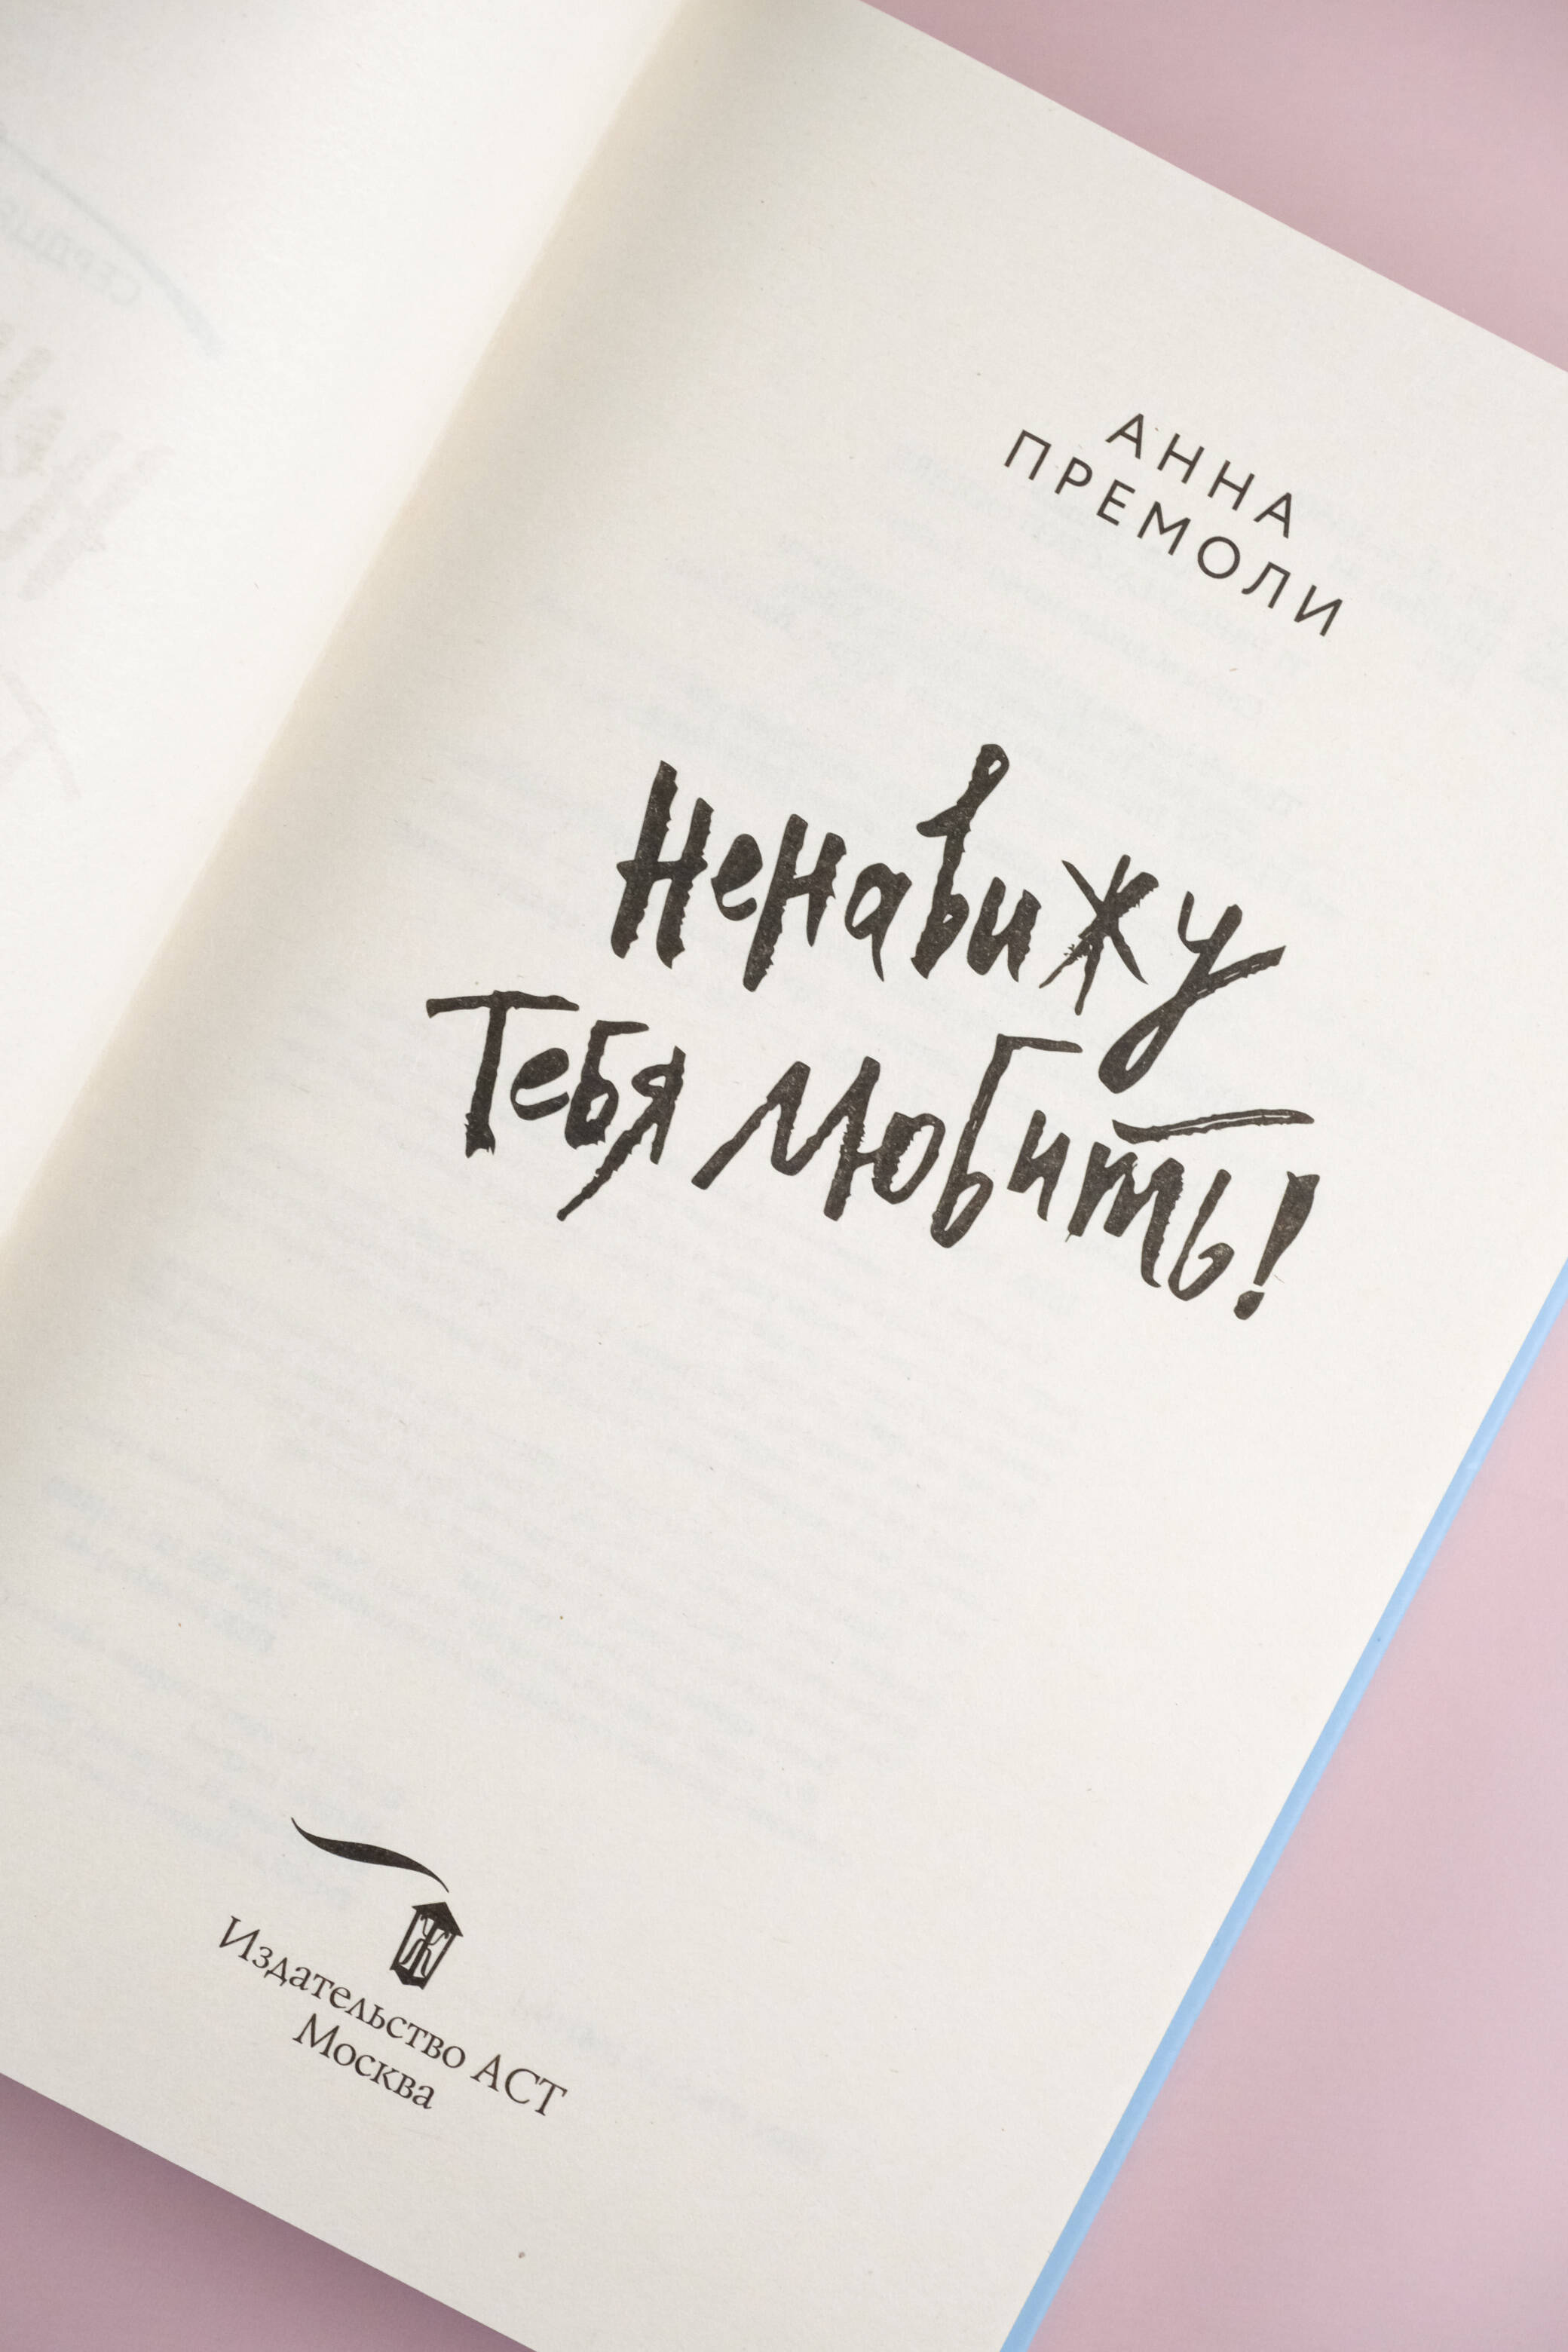 АННА
ПРЕМОЛИ
Ненавижу
Тебя любить!
Ж
Издательство АСТ
Москва